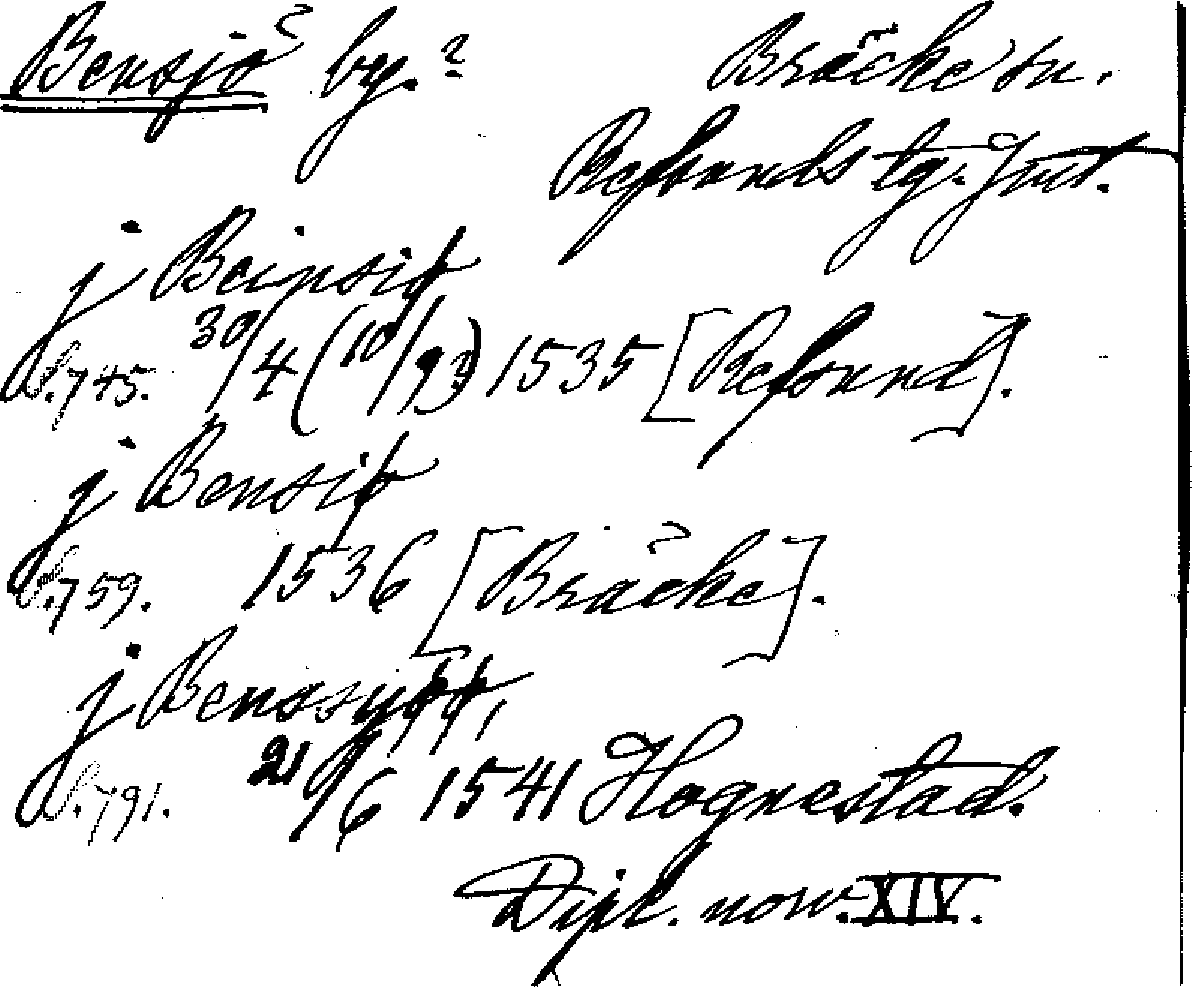 Bensjö by.² Bräcke sn.
Refsunds tg. Jmt.
j Beinsiø
S. 745. 30/4 (10/93) 1535 [Refsund].
j Bensiø
S. 759. 1536 [Bräcke].
j Benssyøø,
S. 791. 21/6 1541 Hognestad.
Dipl. norv. XIV.